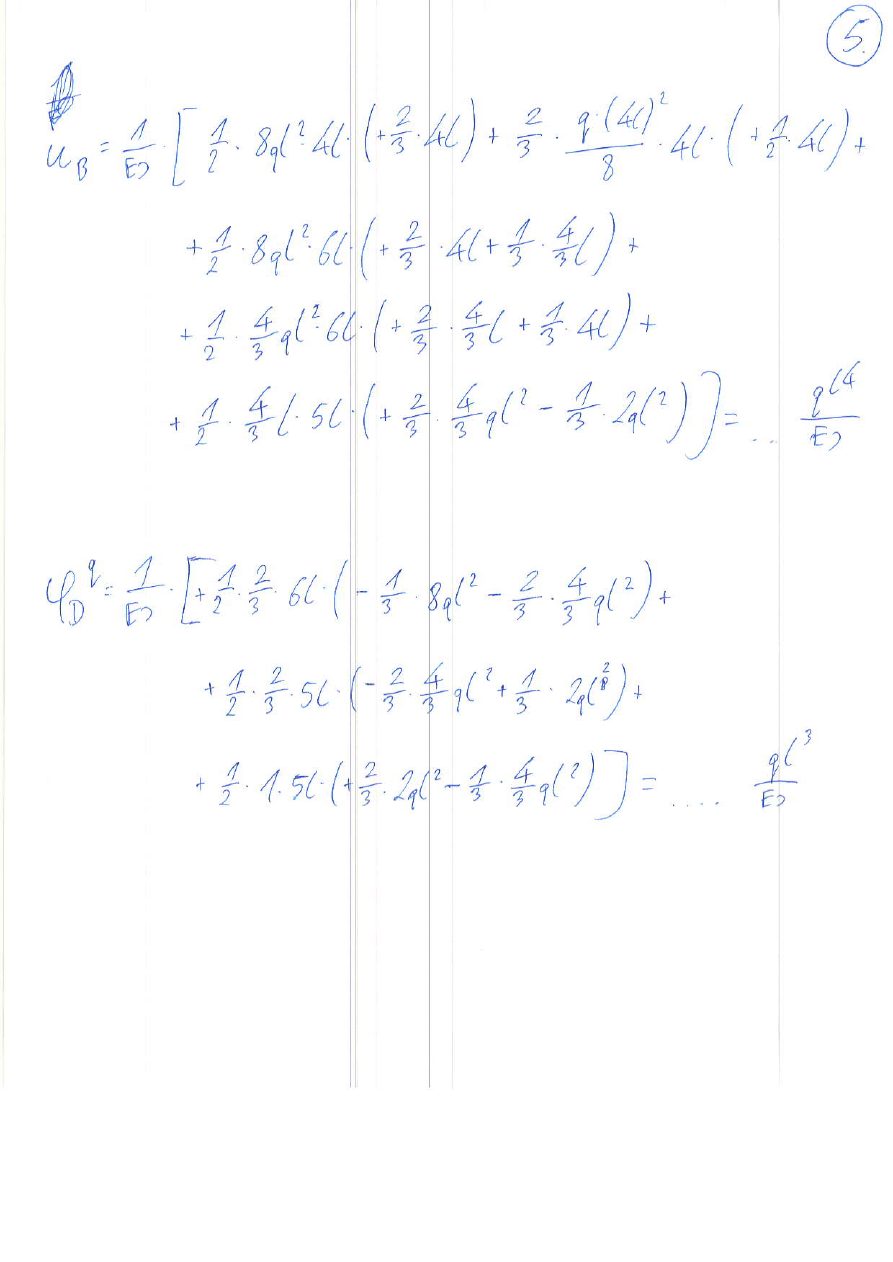 5.
u_B = 1/EJ · [ 1/2 · 8ql² · 4l · (+ 2/3 · 4l) + 2/3 · q·(4l)²/8 · 4l · (+ 1/2 · 4l) +
+ 1/2 · 8ql² · 6l · (+ 2/3 · 4l + 1/3 · 4/3 l) +
+ 1/2 · 4/3 ql² · 6l · (+ 2/3 · 4/3 l + 1/3 · 4l) +
+ 1/2 · 4/3 l · 5l · (+ 2/3 · 4/3 ql² - 1/3 · 2ql²) ] = ... ql⁴/EJ
φ_D^q = 1/EJ · [ + 1/2 · 2/3 · 6l · (- 1/3 · 8ql² - 2/3 · 4/3 ql²) +
+ 1/2 · 2/3 · 5l · (- 2/3 · 4/3 ql² + 1/3 · 2ql²) +
+ 1/2 · 1 · 5l · (+ 2/3 · 2ql² - 1/3 · 4/3 ql²) ] = .... ql³/EJ